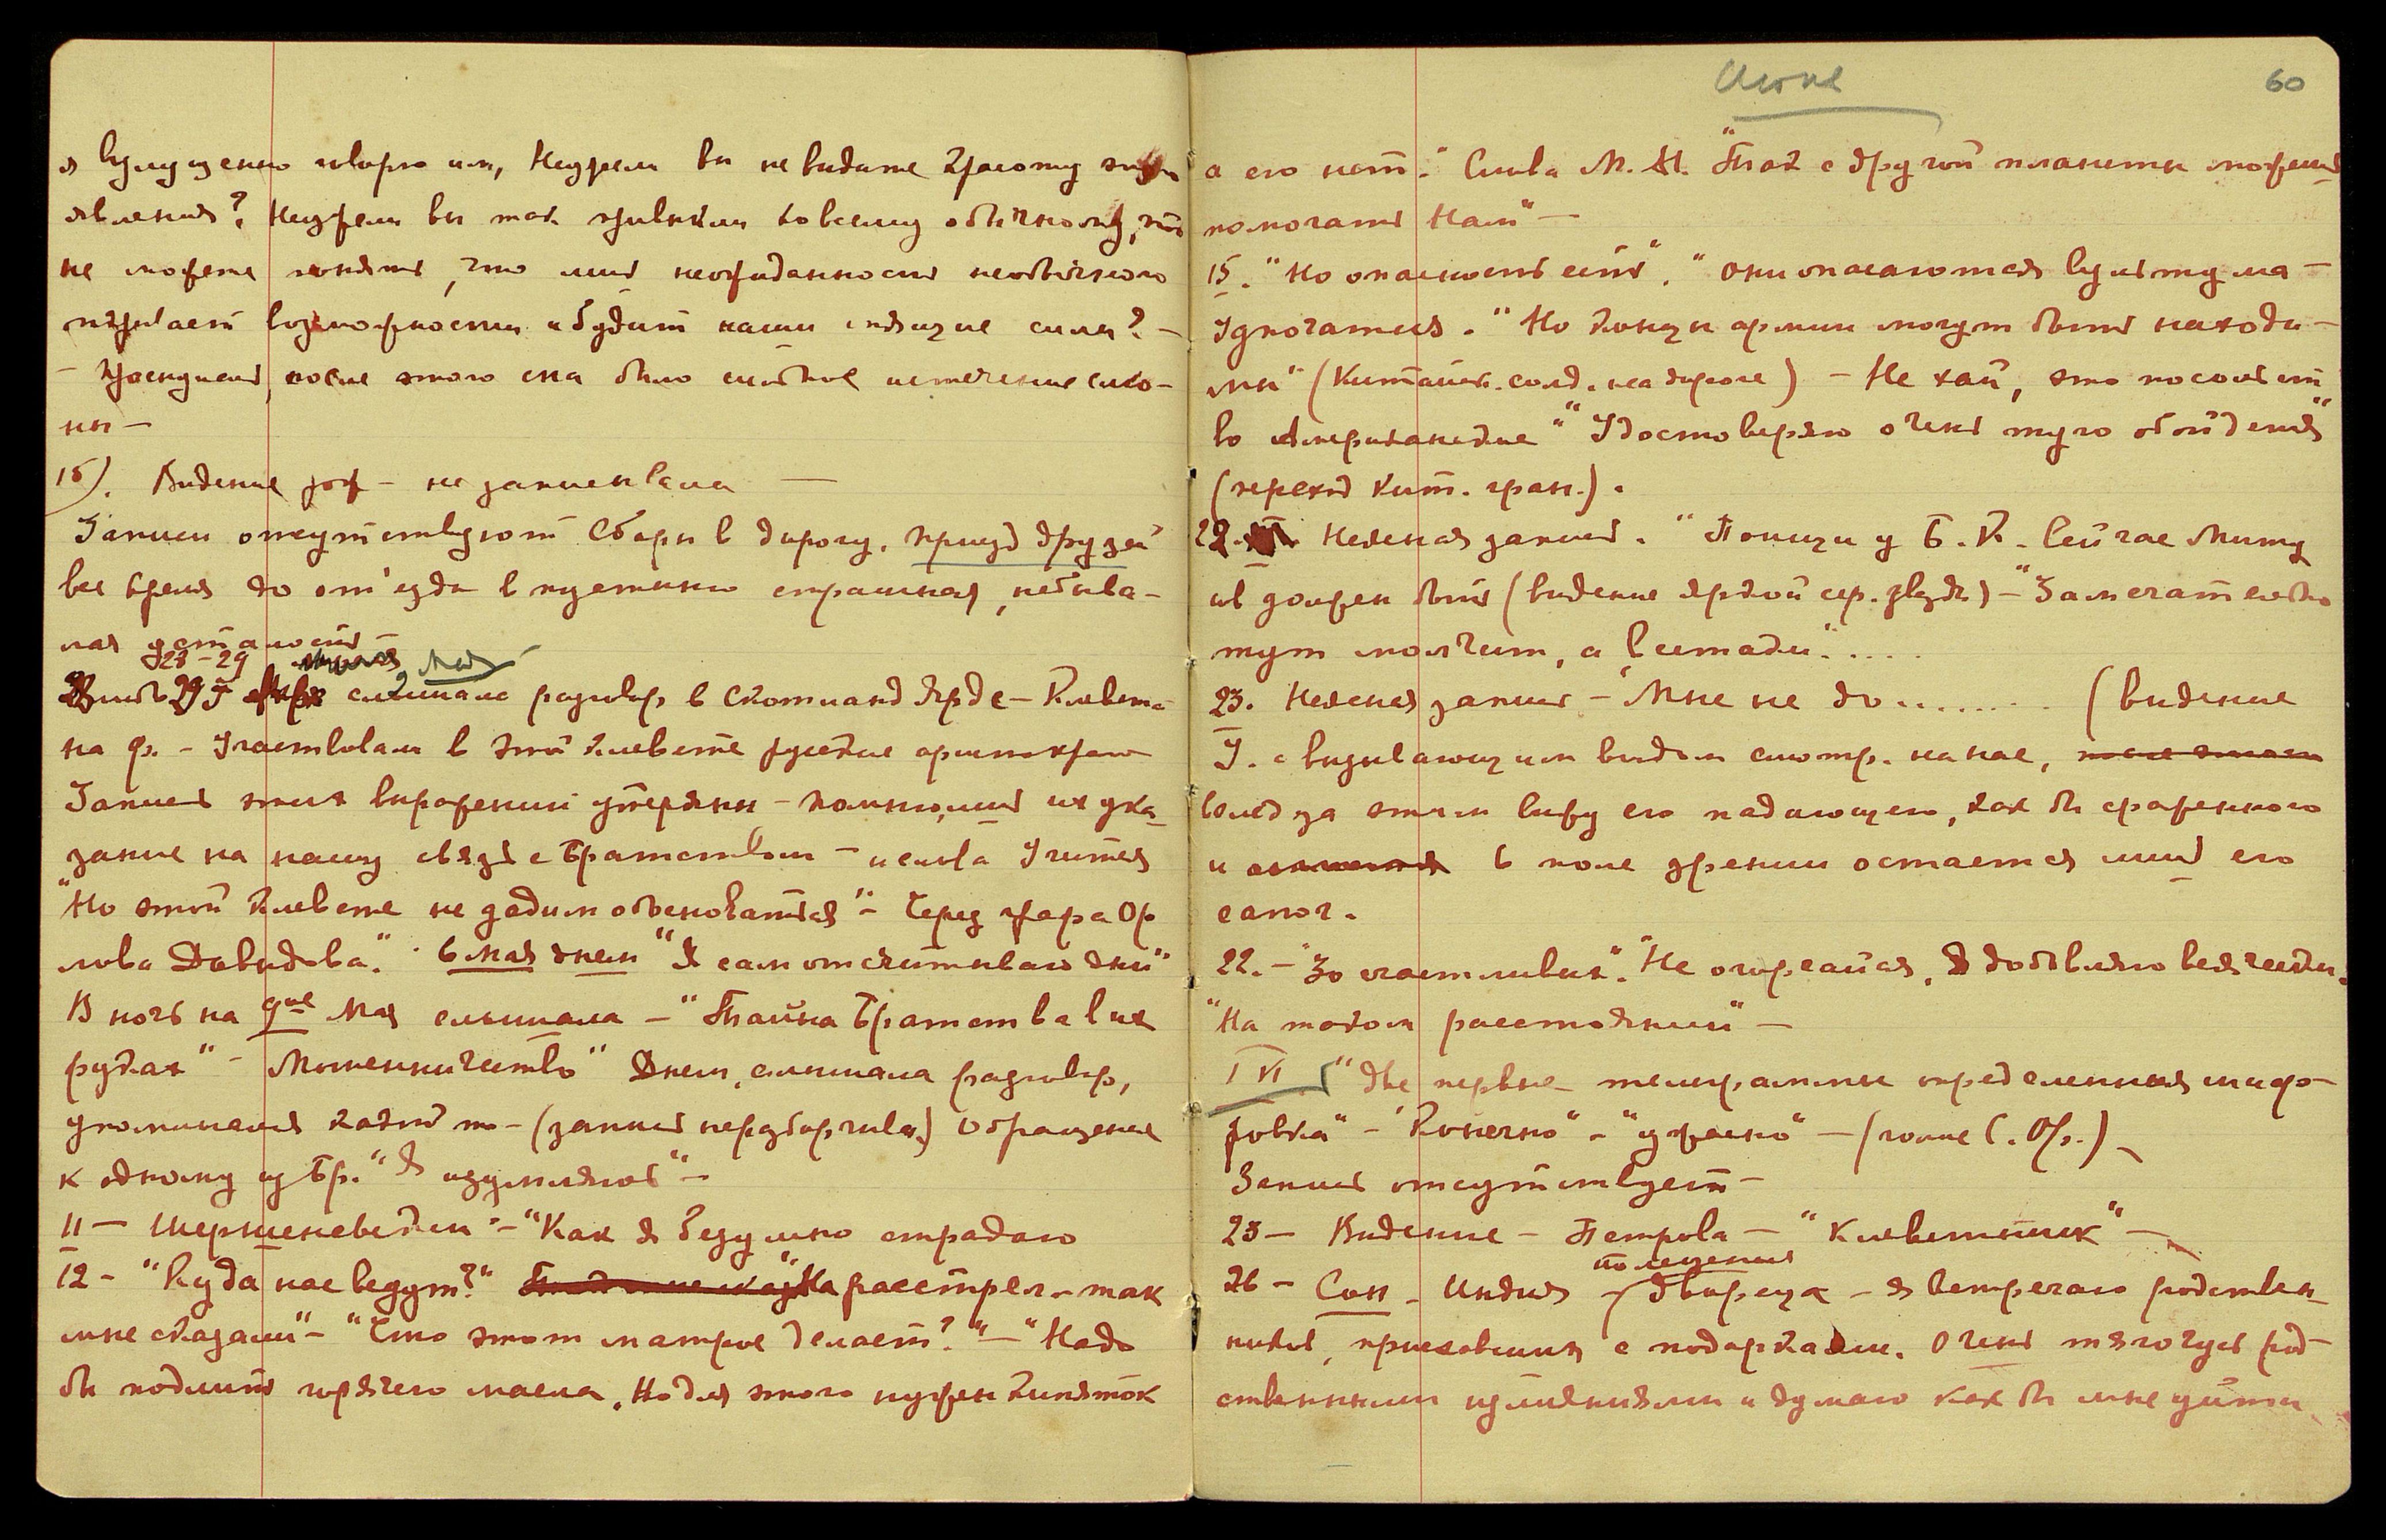 я возмущенно говорю им, Неужели вы не видите красоту этого
явления? Неужели вы так привыкли ко всему обычному, что
не можете понять, что лишь неожиданность необычного
пробуждает возможности и будит наши спящие силы? –
– Проснулась, после этого сна было сильное истечение слю-
ны –
16). Видение рож – не записывала —
Записи отсутствуют Сборы в дорогу. приезд друзей
все время до от'езда в пустыню страшная, небыва-
лая усталость –
28 – 29 мая
слышала разговор в Скотланд Ярде – Клевета
на ф. – Участвовали в этой клевете русские аристократы
Запись этих выражений утеряны – помню, лишь их ука-
зание на нашу связь с Братством – и слова Учителя
"Но этой клевете не дадим обосноваться" – Через графа Ор
лова Давыдова." 6 мая днем "Я сам отсчитываю дни"
В ночь на 9ое Мая слышала – "Тайна Братства в их
руках" – Мошенничество" Днем, слышала разговор,
упоминался какой то – (запись неразборчива) Обращение
к одному из Бр. "Я изумляюсь" –
11 – Шершеневский – "Как я безумно страдаю
12 – "Куда нас ведут?" На расстрел – так
мне сказали" – "Что этот матрос делает?" – "Надо
бы подлить горячего масла. Но для этого нужен кипяток
Июнь
60
а его нет." Слова М. М. "Так с другой планеты можешь
помогать Нам" –
15. "Но опасность есть". "Они опасаются
"Но концы армии могут быть находи-
мы" (Китайск. солд. на дороге) – Не хай, это посольст
во Американские" "Удостоверяю очень туго обойденья"
(переход Кит. гран.).
22. Неясная запись. "Поищи у Б. К. Сейчас Минту
ов должен быть (видение яркой сер. звезды) – "Замечательно
тут молчит, а в ситади".....
23. Неясная запись – "Мне не до......... (видение
У. с вызывающим видом смотр. на нас, после этого
вслед за этим вижу его падающего, как бы сраженного
и в поле зрения остается лишь его
сапог.
22. – "Зо счастливых". "Не огорчайся, Я добавляю всячески.
"На таком расстоянии" –
I VI "две первые телеграммы определенная шиф-
ровка" – "Конечно" – "ужасно" – (голос С. Ор.) –
Запись отсутствует –
23 – Видение – Петрова – "Клеветник" –
помещения
26 – Сон – Индия – дворец – я встречаю родствен-
ников, приехавших с подарками. Очень тягочусь род-
ственными излияниями и думаю как бы мне уйти